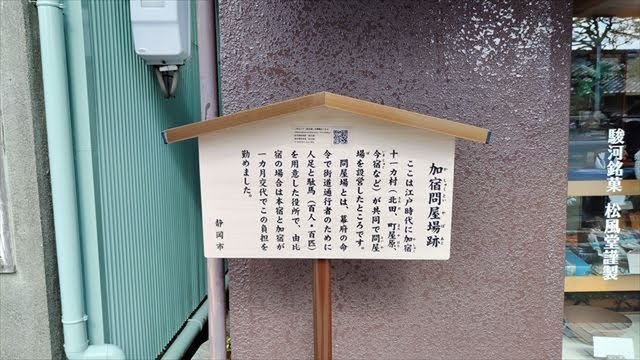 加宿問屋場跡
ここは江戸時代に加宿
十一カ村（北田、町屋原、
今宿など）が共同で問屋
場を設営したところです。
問屋場とは、幕府の命
令で街道通行者のために
人足と駄馬（百人・百匹）
を用意した役所で、由比
宿の場合は本宿と加宿が
一カ月交代でこの負担を
勤めました。
静岡市
駿河銘菓 松風堂謹製